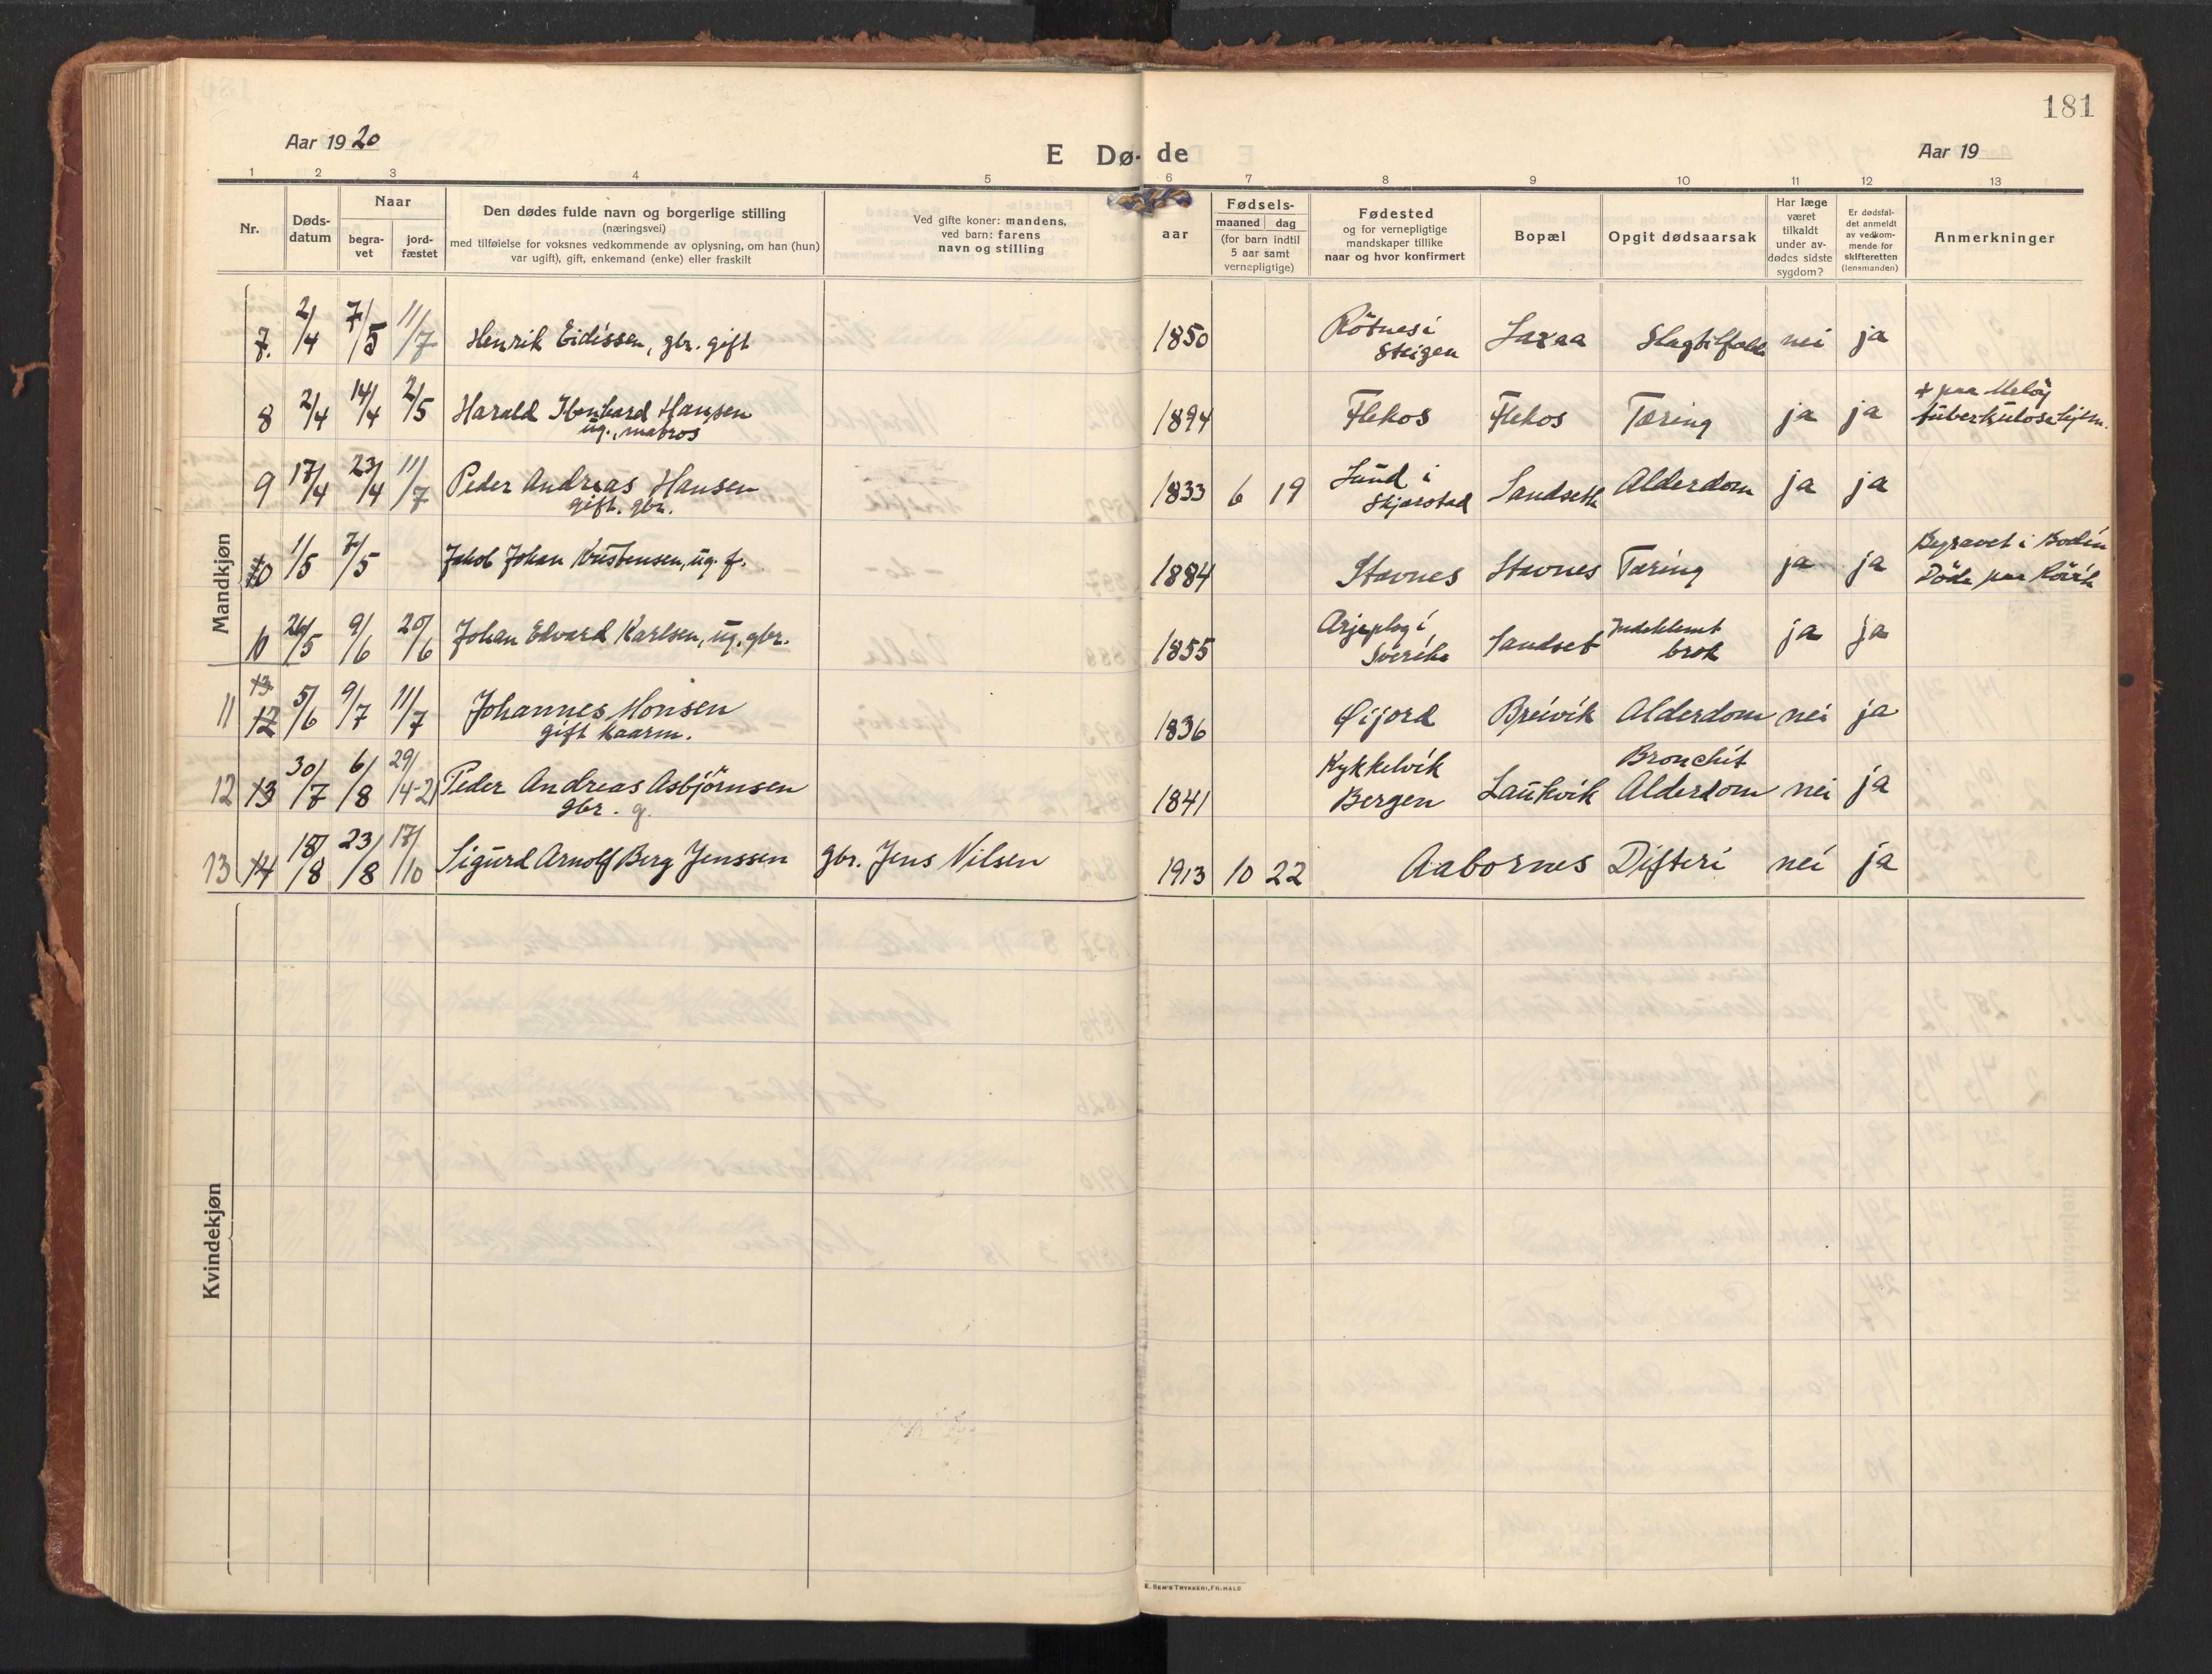 181
Aar 1920
E Dø- de
Aar 19
1 2 3 4 5 6 7 8 9 10 11 12 13
Nr.
Døds-
datum
Naar
begra-
vet
jord-
fæstet
Den dødes fulde navn og borgerlige stilling
(næringsvei)
med tilføielse for voksnes vedkommende av oplysning, om han (hun)
var ugift), gift, enkemand (enke) eller fraskilt
Ved gifte koner: mandens,
ved barn: farens
navn og stilling
aar
Fødsels-
maaned dag
(for barn indtil
5 aar samt
vernepligtige)
Fødested
og for vernepligtige
mandskaper tillike
naar og hvor konfirmert
Bopæl
Opgit dødsaarsak
Har læge
været
tilkaldt
under av-
dødes sidste
sygdom?
Er dødsfal-
det anmeldt
av vedkom-
mende for
skifteretten
(lensmanden)
Anmerkninger
Mandkjøn
7. 2/4 7/5 11/7 Henrik Eidissen, gbr. gift 1850 Rötnes i Steigen Laxaa Slagtilfælde nei ja
8 2/4 14/4 2/5 Harald Hansen 1894 Flekos Flekos Tæring ja ja + paa Meløy
ug., matros tuberkulosehjem.
9 17/4 23/4 11/7 Peder Andreas Hansen 1833 6 19 Lund i Skjerstad Sandseth Alderdom ja ja
gift. gbr.
10 1/5 7/5 Jakob Johan Kristensen, ug. f. 1884 Stavnes Stavnes Tæring ja ja Begravet i Bodin
Døde paa Rövik
10 26/5 9/6 20/6 Johan Edvard Karlsen, ug. gbr. 1855 Arjeplog i Sverike Sandset Indeklemt brok ja ja
13
11 12 5/6 9/7 11/7 Johannes Monsen 1836 Øijord Breivik Alderdom nei ja
gift kaarm.
12 13 30/7 6/8 29/4-21 Peder Andreas Asbjörnsen 1841 Kykkelvik Bergen Laukvik Bronchit Alderdom nei ja
gbr. g.
13 14 18/8 23/8 17/10 Sigurd Arnolf Berg Jenssen gbr. Jens Nilsen 1913 10 22 Aabornes Difteri nei ja
Kvindekjøn
E. SEM'S TRYKKERI, FR. HALD